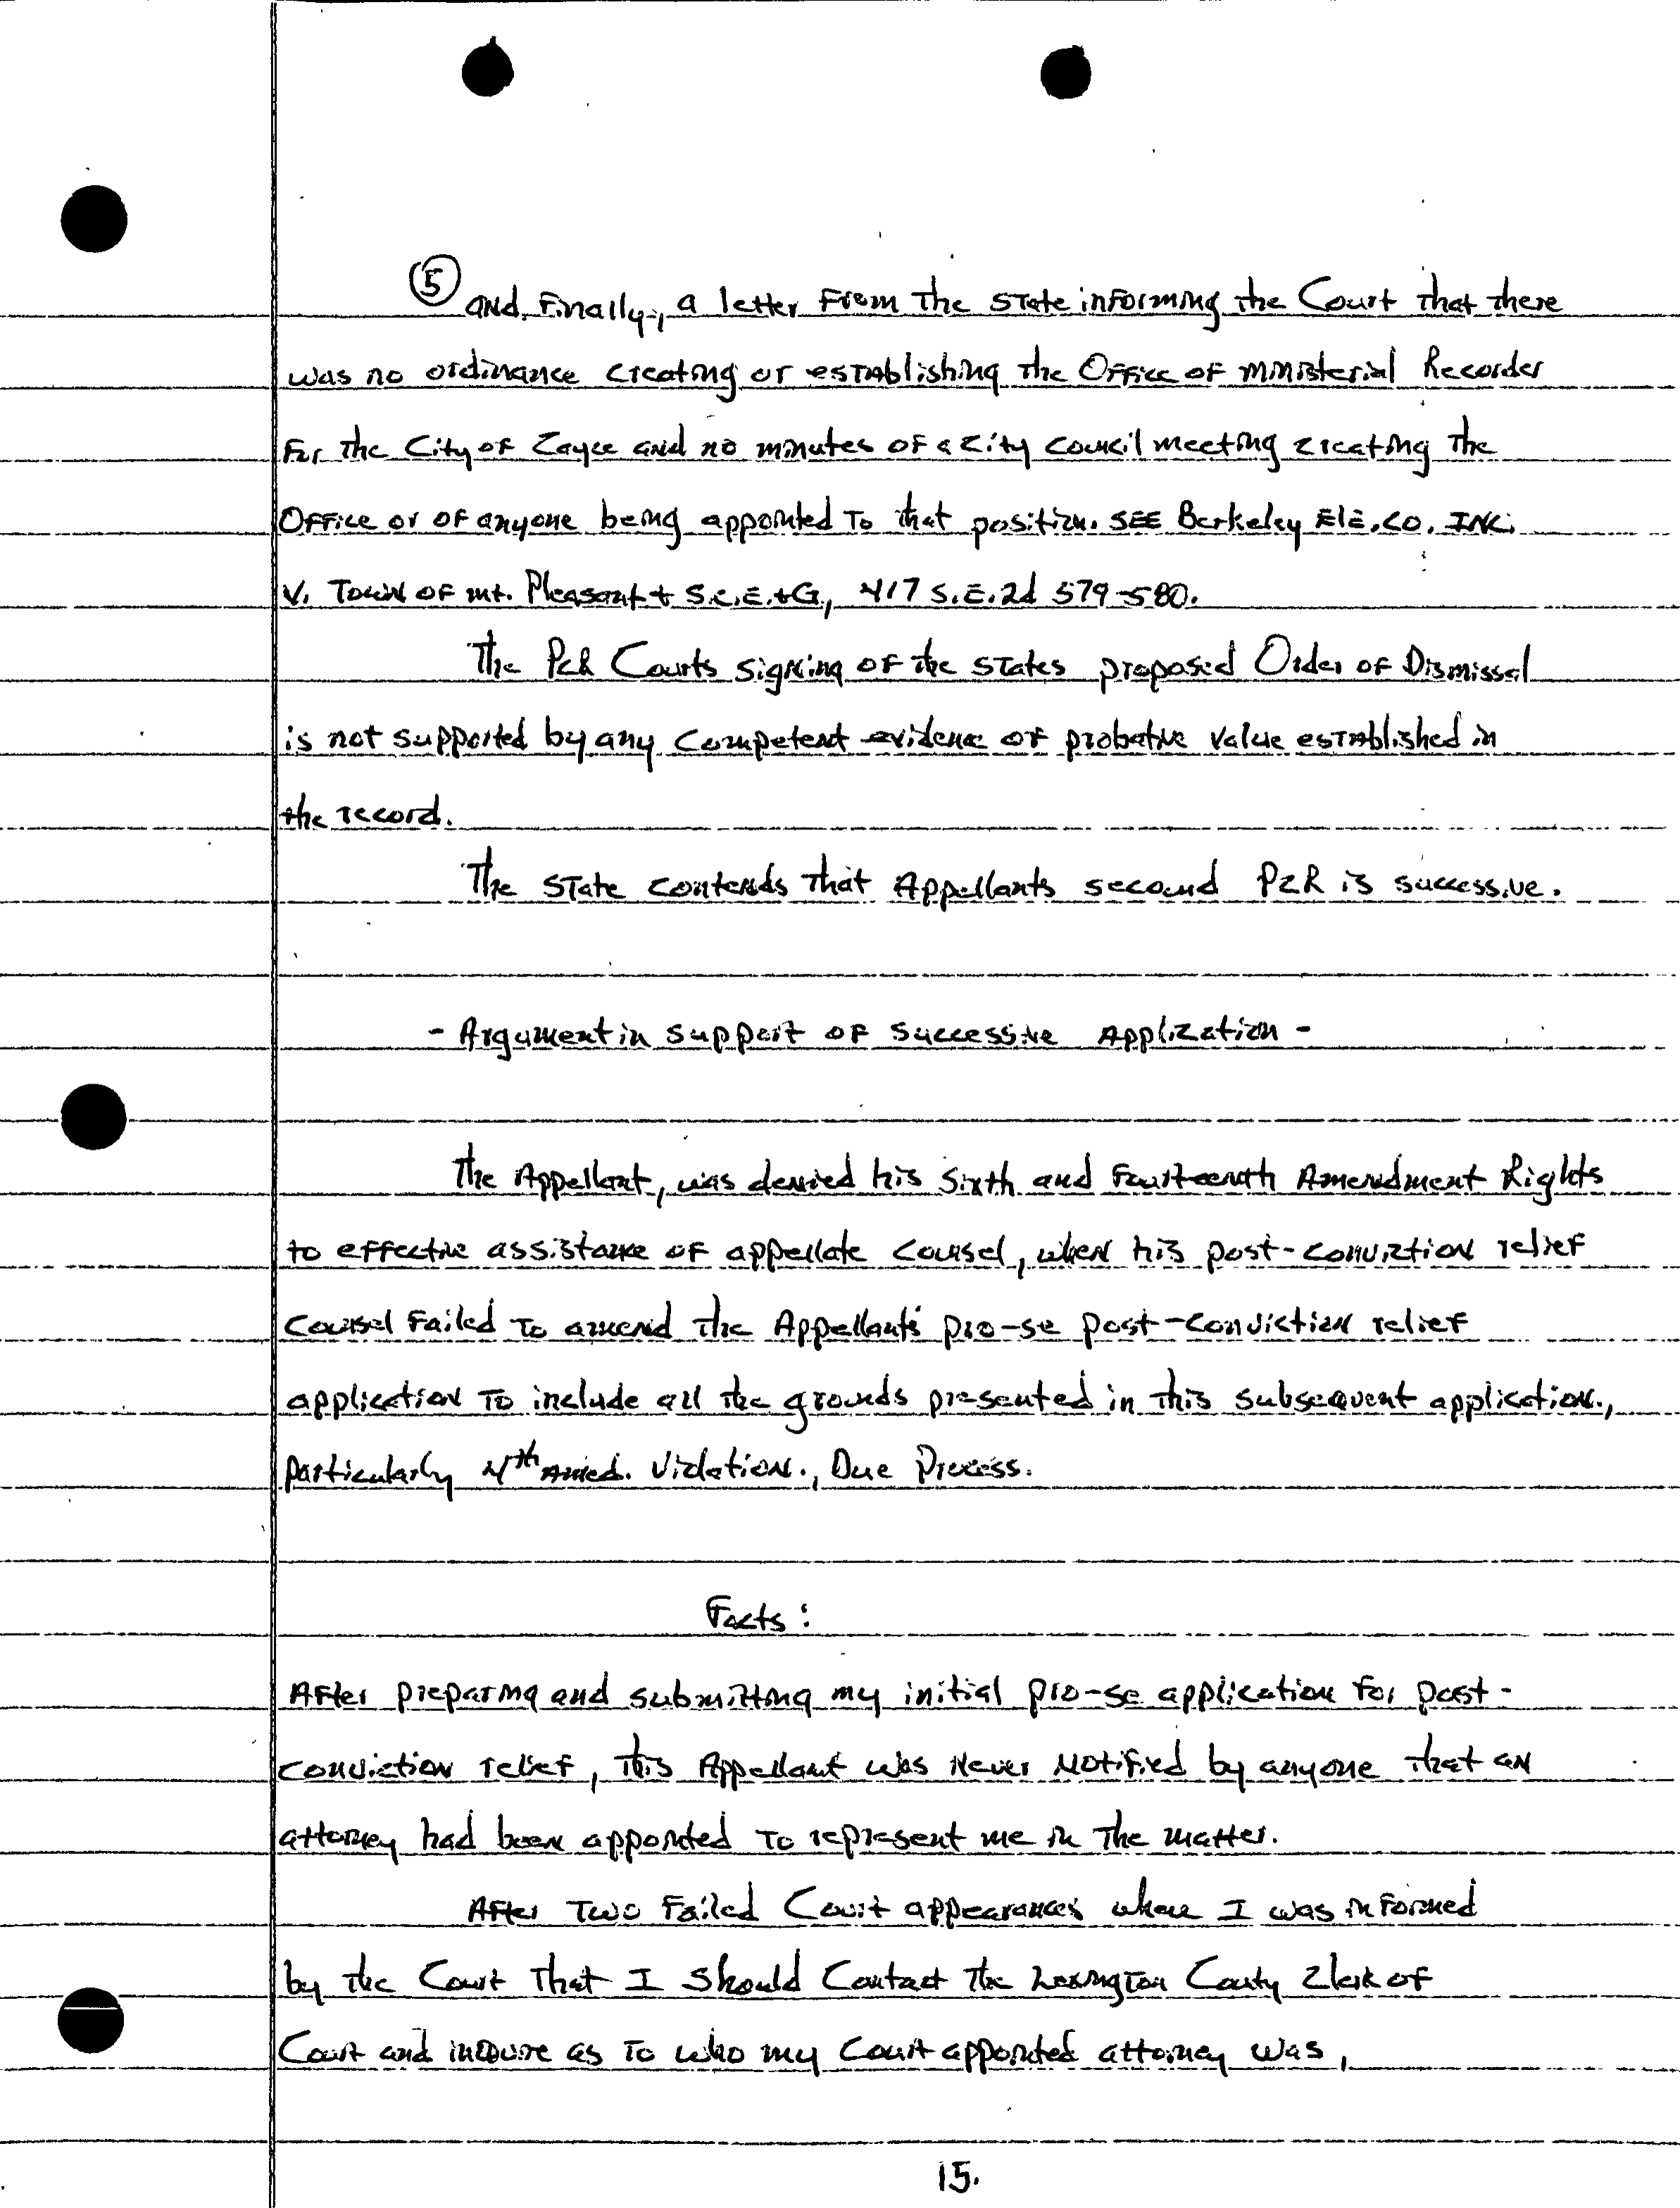 ⑤ and Finally, a letter From The State informing the Court That there
was no ordinance creating or establishing the Office of Ministerial Recorder
For the City of Cayce and no minutes of a City Council meeting creating The
Office or of anyone being appointed To that position. SEE Berkeley Ele. Co. INC.
V. Town of Mt. Pleasant + S.C.E.+G., 417 S.E.2d 579-580.
The PCR Courts signing of the States proposed Order of Dismissal
is not supported by any Competent evidence of probative value established in
the record.
The State contends that Appellants second PCR is successive.
- Argument in support of Successive Application -
The Appellant, was denied his Sixth and Fourteenth Amendment Rights
to effective assistance of appellate Counsel, when his post-conviction relief
Counsel Failed To amend The Appellant's pro-se post-conviction relief
application To include all the grounds presented in this subsequent application.,
particularly 4th Amed. Violation., Due Process.
Facts :
After preparing and submitting my initial pro-se application for post-
conviction relief, This Appellant was never notified by anyone that an
attorney had been appointed To represent me in The matter.
After Two Failed Court appearances where I was informed
by The Court That I should Contact The Lexington County Clerk of
Court and inquire as To who my Court appointed attorney was,
15.